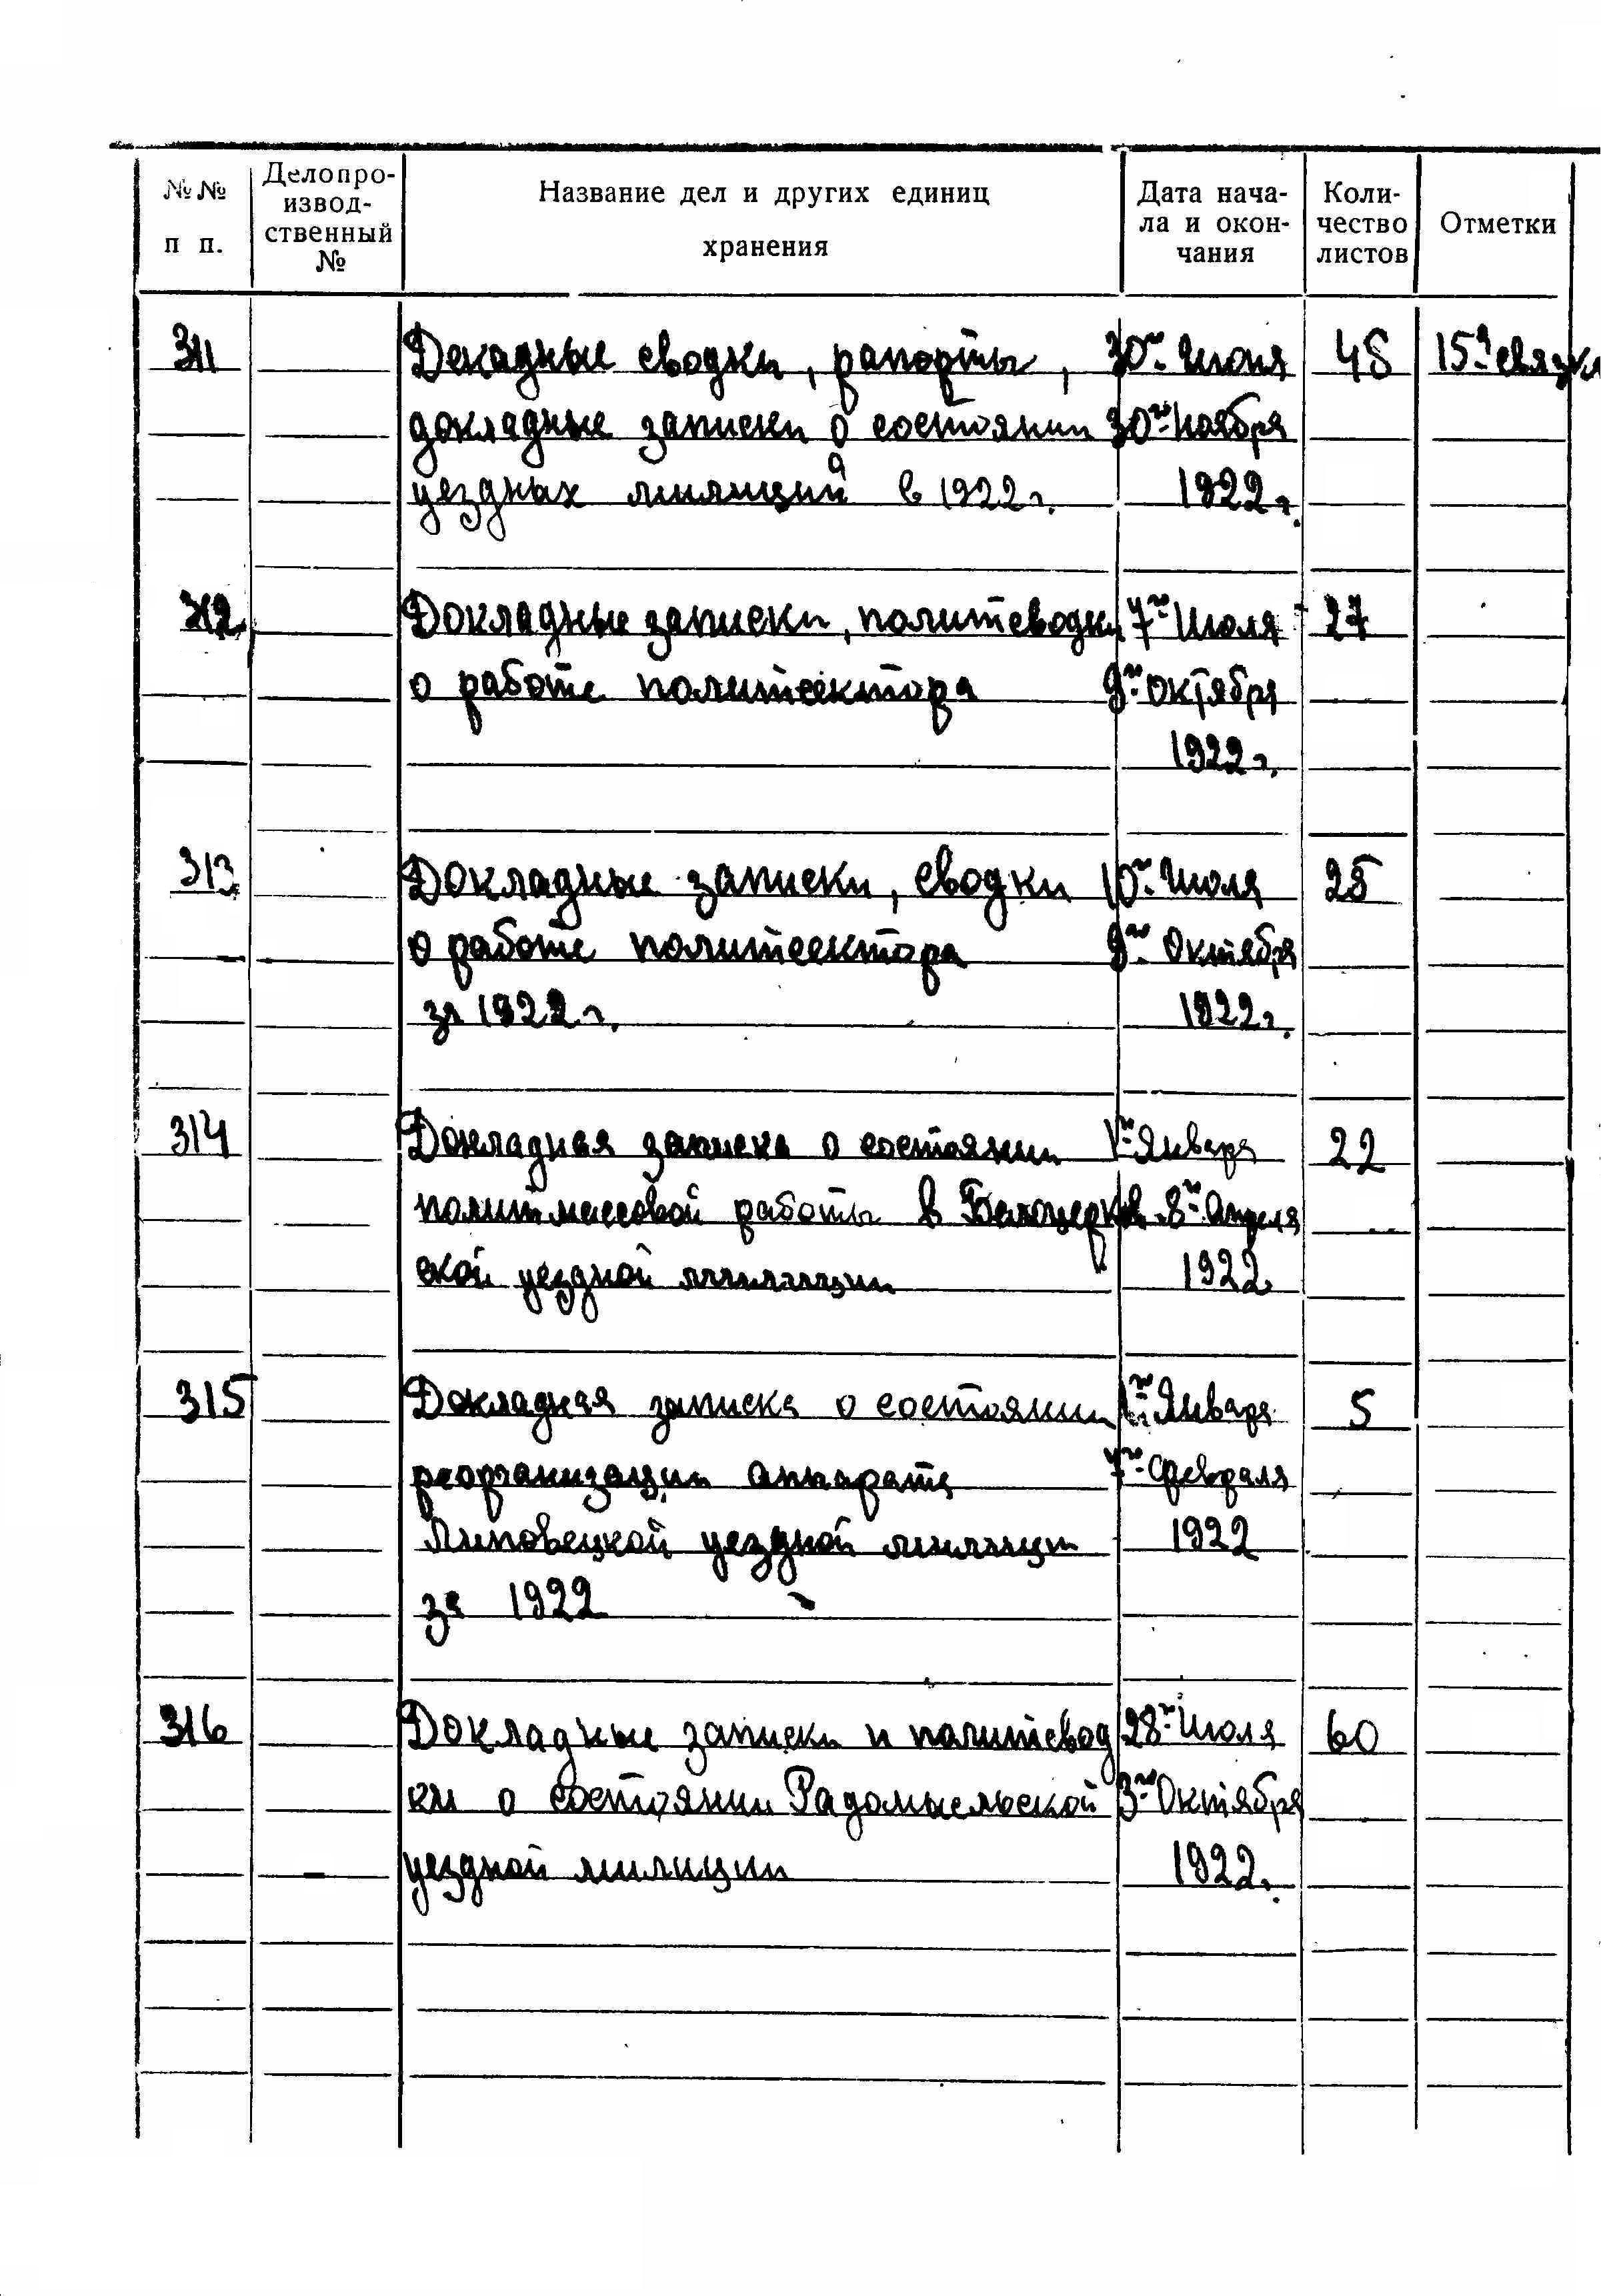 №№ п п.
Делопро-
извод-
ственный
№
Название дел и других единиц
хранения
Дата нача-
ла и окон-
чания
Коли-
чество
листов
Отметки
311 Декадные сводки, рапорты, 30го Июня 48 15я связка
докладные записки о состоянии 30го Ноября
уездных милиций в 1922г. 1922г.
312 Докладные записки, политсводки 7го Июля 27
о работе политсектора 9го Октября
1922г.
313 Докладные записки, сводки 10го Июля 25
о работе политсектора 9го Октября
за 1922г. 1922г.
314 Докладная записка о состоянии 1го Января 22
политмассовой работы в Белоцерков 8го Апреля
ской уездной милиции 1922.
315 Докладная записка о состоянии 1го Января 5
реорганизации аппарата 7го Февраля
Липовецкой уездной милиции 1922
за 1922
316 Докладные записки и политсвод 28го Июля 60
ки о состоянии Радомысльской 3го Октября
уездной милиции 1922.